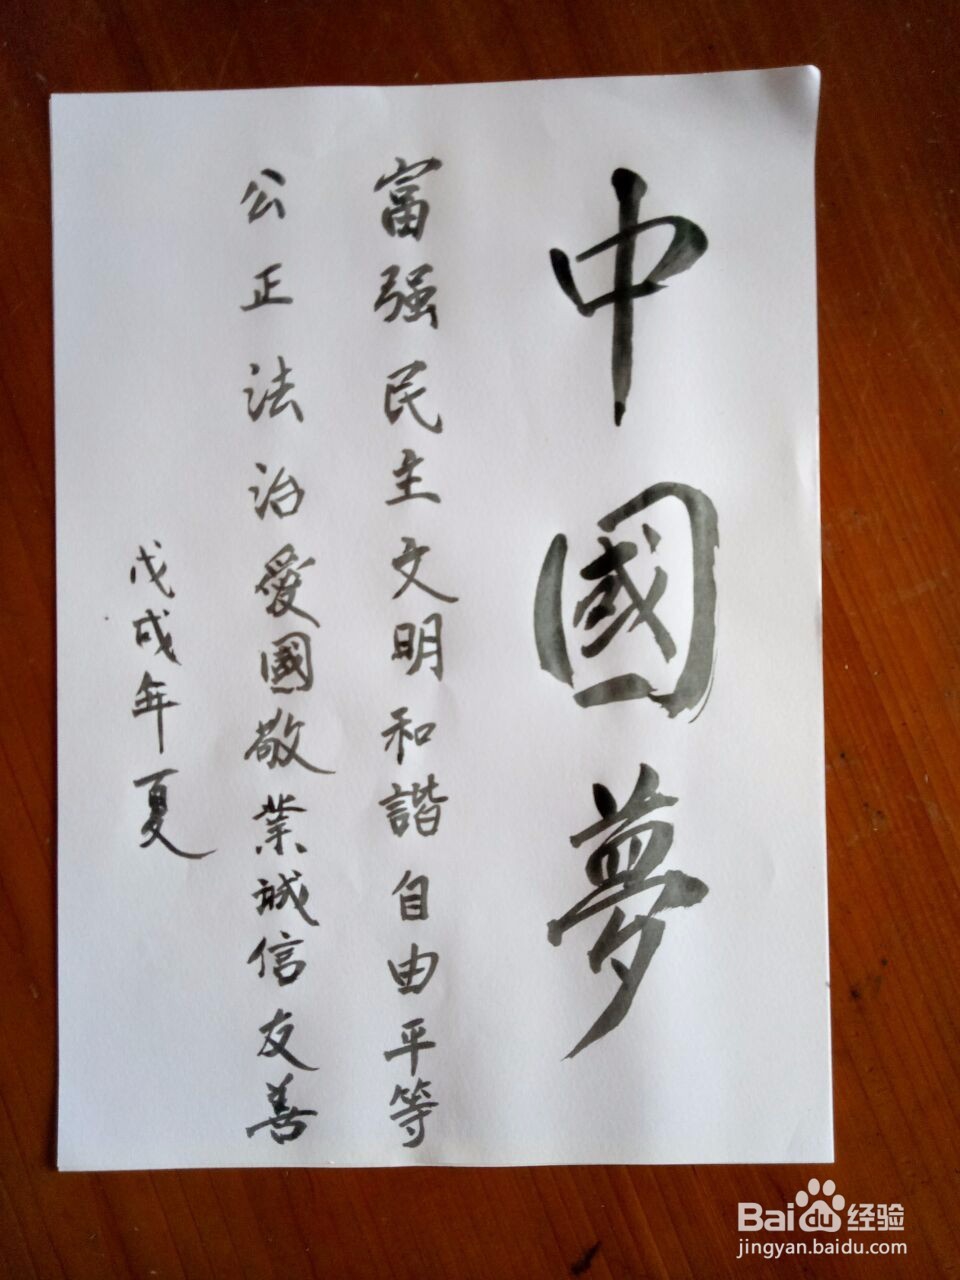 中國夢
富强民主文明和諧自由平等
公正法治愛國敬業誠信友善
戊戌年夏
Baidu经验
jingyan.baidu.com